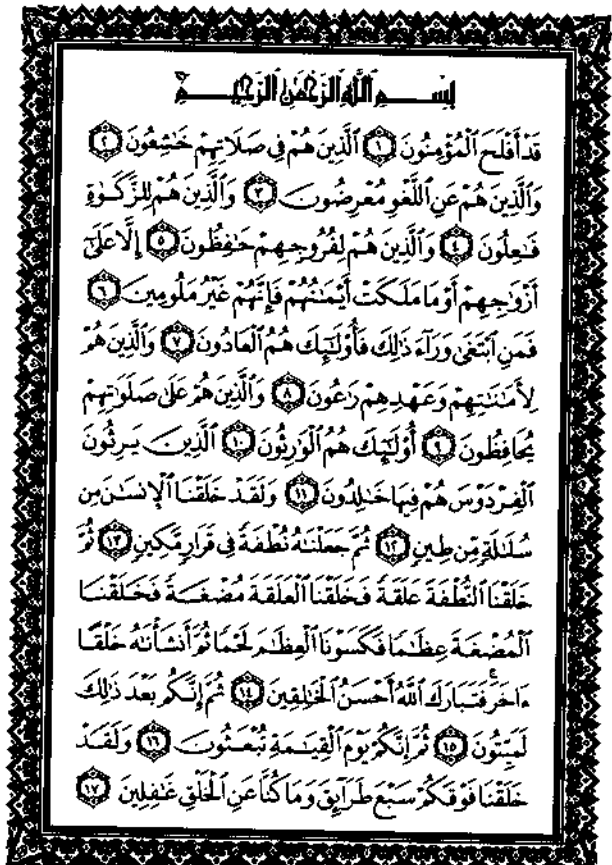 بِسْمِ ٱللَّهِ ٱلرَّحْمَٰنِ ٱلرَّحِيمِ
قَدْ أَفْلَحَ ٱلْمُؤْمِنُونَ ١ ٱلَّذِينَ هُمْ فِى صَلَاتِهِمْ خَٰشِعُونَ ٢
وَٱلَّذِينَ هُمْ عَنِ ٱللَّغْوِ مُعْرِضُونَ ٣ وَٱلَّذِينَ هُمْ لِلزَّكَوٰةِ
فَٰعِلُونَ ٤ وَٱلَّذِينَ هُمْ لِفُرُوجِهِمْ حَٰفِظُونَ ٥ إِلَّا عَلَىٰٓ
أَزْوَٰجِهِمْ أَوْ مَا مَلَكَتْ أَيْمَٰنُهُمْ فَإِنَّهُمْ غَيْرُ مَلُومِينَ ٦
فَمَنِ ٱبْتَغَىٰ وَرَآءَ ذَٰلِكَ فَأُو۟لَٰٓئِكَ هُمُ ٱلْعَادُونَ ٧ وَٱلَّذِينَ هُمْ
لِأَمَٰنَٰتِهِمْ وَعَهْدِهِمْ رَٰعُونَ ٨ وَٱلَّذِينَ هُمْ عَلَىٰ صَلَوَٰتِهِمْ
يُحَافِظُونَ ٩ أُو۟لَٰٓئِكَ هُمُ ٱلْوَٰرِثُونَ ١٠ ٱلَّذِينَ يَرِثُونَ
ٱلْفِرْدَوْسَ هُمْ فِيهَا خَٰلِدُونَ ١١ وَلَقَدْ خَلَقْنَا ٱلْإِنسَٰنَ مِن
سُلَٰلَةٍ مِّن طِينٍ ١٢ ثُمَّ جَعَلْنَٰهُ نُطْفَةً فِى قَرَارٍ مَّكِينٍ ١٣ ثُمَّ
خَلَقْنَا ٱلنُّطْفَةَ عَلَقَةً فَخَلَقْنَا ٱلْعَلَقَةَ مُضْغَةً فَخَلَقْنَا
ٱلْمُضْغَةَ عِظَٰمًا فَكَسَوْنَا ٱلْعِظَٰمَ لَحْمًا ثُمَّ أَنشَأْنَٰهُ خَلْقًا
ءَاخَرَ فَتَبَارَكَ ٱللَّهُ أَحْسَنُ ٱلْخَٰلِقِينَ ١٤ ثُمَّ إِنَّكُم بَعْدَ ذَٰلِكَ
لَمَيِّتُونَ ١٥ ثُمَّ إِنَّكُمْ يَوْمَ ٱلْقِيَٰمَةِ تُبْعَثُونَ ١٦ وَلَقَدْ
خَلَقْنَا فَوْقَكُمْ سَبْعَ طَرَآئِقَ وَمَا كُنَّا عَنِ ٱلْخَلْقِ غَٰفِلِينَ ١٧